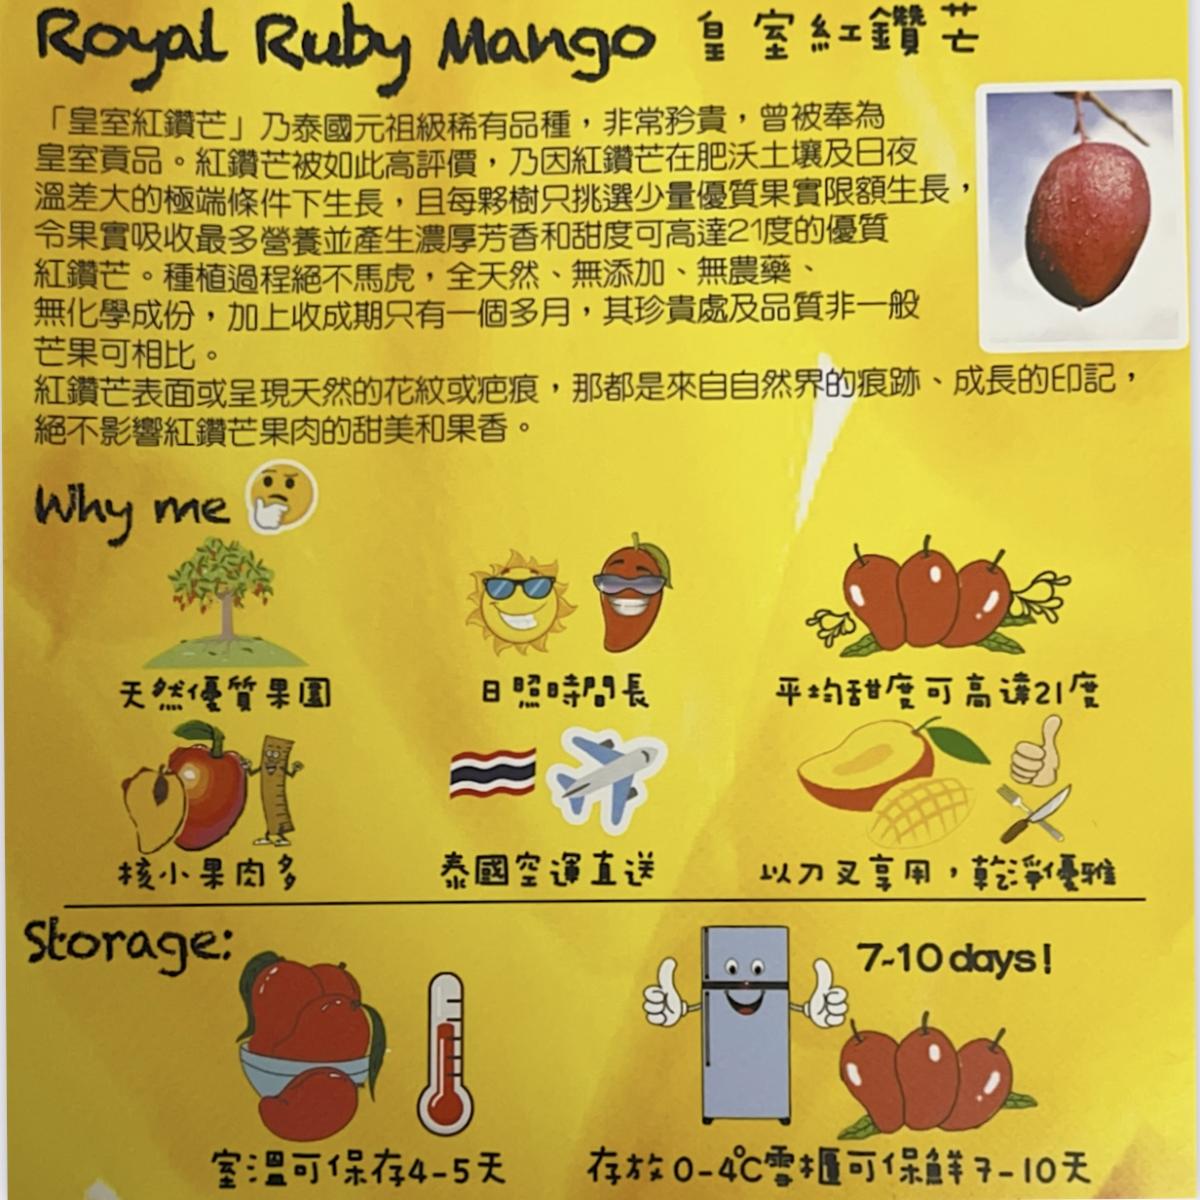 Royal Ruby Mango 皇室紅鑽芒
「皇室紅鑽芒」乃泰國元祖級稀有品種，非常矜貴，曾被奉為
皇室貢品。紅鑽芒被如此高評價，乃因紅鑽芒在肥沃土壤及日夜
溫差大的極端條件下生長，且每夥樹只挑選少量優質果實限額生長，
令果實吸收最多營養並產生濃厚芳香和甜度可高達21度的優質
紅鑽芒。種植過程絕不馬虎，全天然、無添加、無農藥、
無化學成份，加上收成期只有一個多月，其珍貴處及品質非一般
芒果可相比。
紅鑽芒表面或呈現天然的花紋或疤痕，那都是來自自然界的痕跡、成長的印記，
絕不影響紅鑽芒果肉的甜美和果香。
Why me
天然優質果園
日照時間長
平均甜度可高達21度
核小果肉多
泰國空運直送
以刀叉享用，乾淨優雅
Storage:
7-10 days!
室溫可保存4-5天
存放0-4℃雪櫃可保鮮7-10天